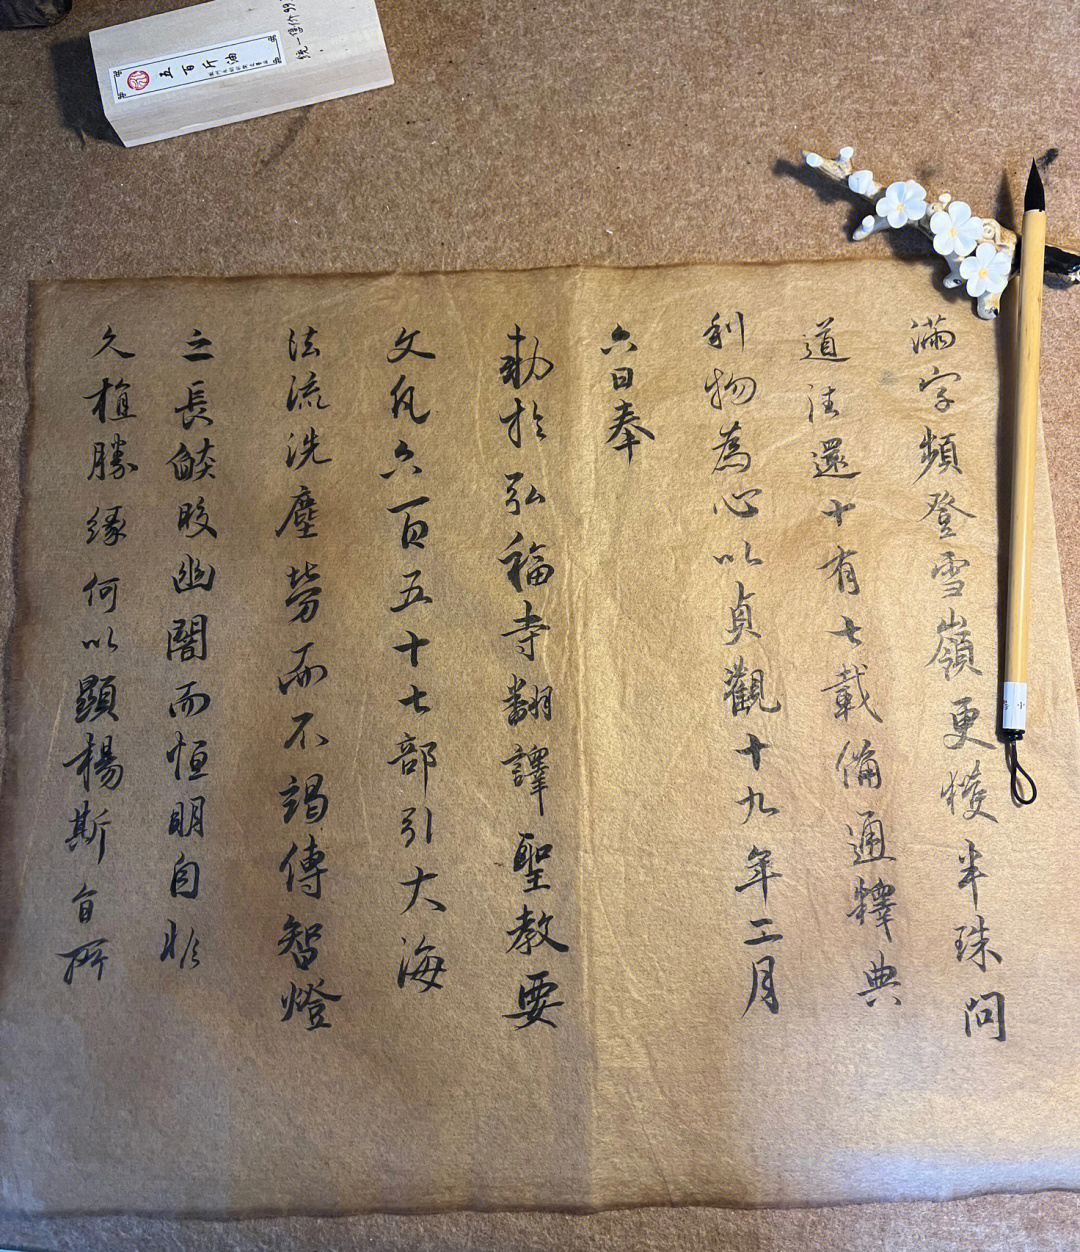 滿字頻登雪嶺更獲半珠問
道法還十有七載備通釋典
利物為心以貞觀十九年二月
六日奉
勅於弘福寺翻譯聖教要
文凡六百五十七部引大海
法流洗塵勞而不竭傳智燈
之長燄皎幽闇而恒明自非
久植勝緣何以顯楊斯旨所
五百斤油
统一售价99